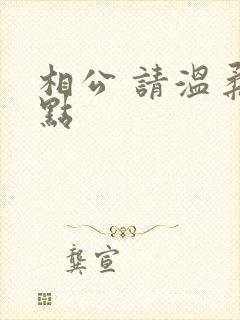 相公 請溫柔
點
龔宣